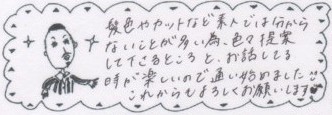 髪色やカットなど素人では分から
ないことが多い為、色々提案
して下さるところと、お話してる
時が楽しいので通い始めました
これからもよろしくお願いします